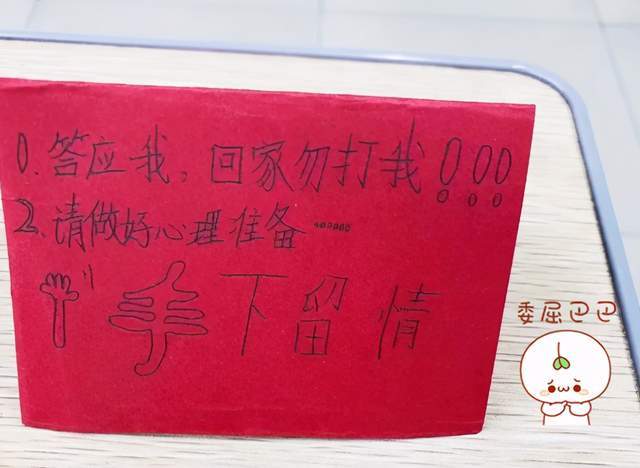 1.答应我,回家勿打我!!!
2.请做好心理准备……
手下留情
委屈巴巴